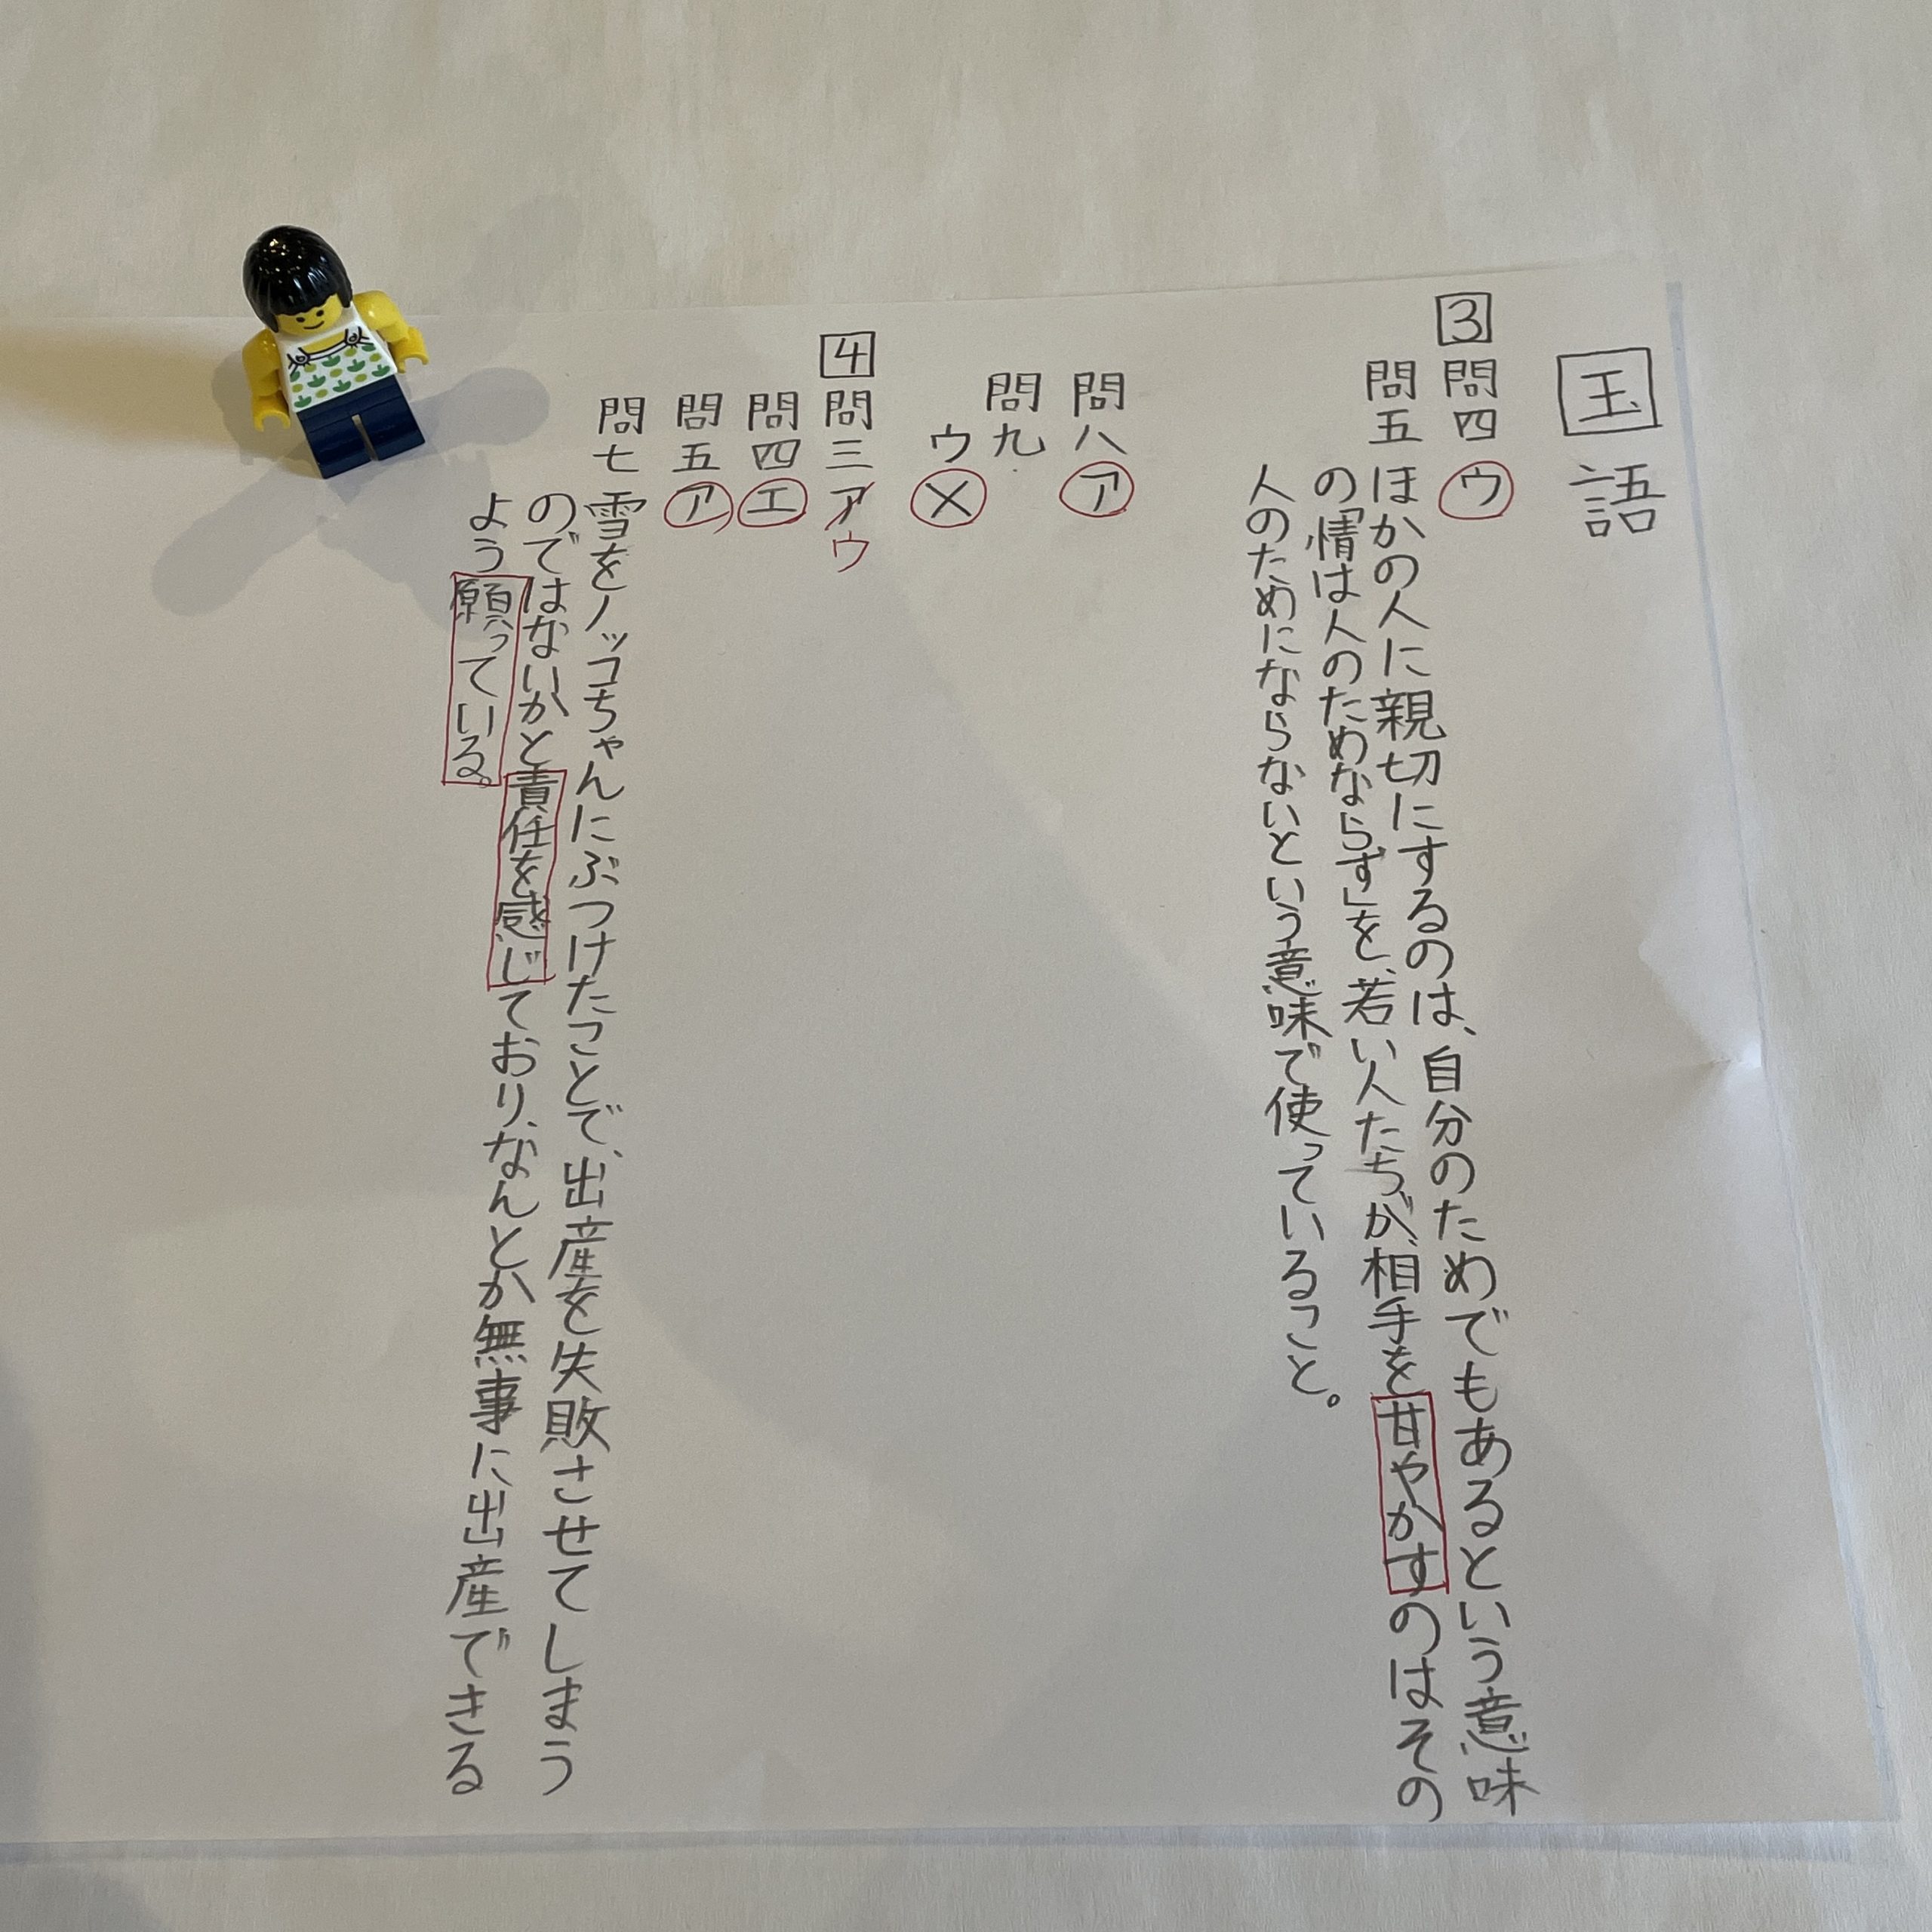 国語
3 問四 ウ
問五 ほかの人に親切にするのは、自分のためでもあるという意味
の「情は人のためならず」を、若い人たちが、相手を甘やかすのはその
人のためにならないという意味で使っていること。
問八 ア
問九
ウ ×
4 問三 ア ウ
問四 エ
問五 ア
問七 雪をノッコちゃんにぶつけたことで、出産を失敗させてしまう
のではないかと責任を感じており、なんとか無事に出産できる
よう願っている。